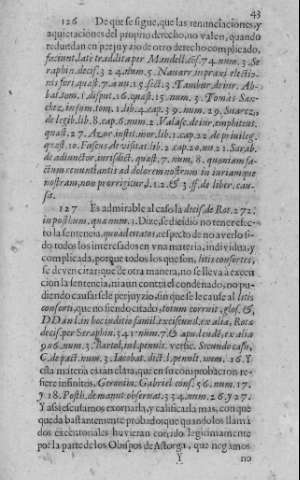 43
126 De que se sigue, que las renunciaciones, y
aquietaciones del proprio derecho, no valen, quando
redundan en perjuyzio de otro derecho complicado,
faciunt late tradita per Mandell. cõs. 74. num. 3. Se
raphin. decis. 324. num. 5. Navarr. in praxi electio
nis fori, quæst. 7. num. 3. Tambur. de iur. Ab-
bat. tom. 1. disput. 16. quæst. 15. num. 3. Tomàs San-
chez, in sum. tom. 1. lib. 4. cap. 39. num. 29. Suarez,
de legib. lib. 8. cap. 6. num. 2. Valasc. de iur. emphiteut.
quæst. 27. Azor instit. mor. lib. 1. cap. 22. de privileg.
quæst. 10. Fuscus de visitat. lib. 2. cap. 20. nu. 21. Sarab.
de adiunctor. iurisdict. quæst. 7. num. 8. quoniam fa-
ctum renuntiantis ad dolorem nostrum in iuriamque
nostram, non porrigitur. l. 2. §. 3. ff. de liber. cau-
sa.
127 Es admirable al caso la decis. de Rot. 272.
in postbum. quæ num. 1. Dize, dedidio no tener efec-
to la sentencia, quoad citatos, respecto de no averlo si-
do todos los interesados en vna materia, individua, y
complicada, porque todos los que son, litis consortes,
se deven citar; que de otra manera, no se lleva à execu
cion la sentencia, ni aun contra el condenado, no pu-
diendo causarsele perjuyzio, sin que se le cause al litis
consorte, que no siendo citado, totum corruit, glos. &
DD. in l. in hoc iudicio famil. erciscund. ex alia, Rotæ
decis. per Seraphin. 341. num. 7. & apu. eund. ex alia
906. num. 3. Bartol. in l. penult. versic. Secundo casu,
C. de pact. num. 3. Iacobat. dict. l. penult. num. 16. Y
esta materia es tan clara, que en su comprobacion re-
fiere infinitos, Geronim. Gabriel cons. 56. num. 17.
y 18. Posth. de manut. observat. 334. num. 26. y 27.
Y assi escusamos exornarla, y calificarla mas, con que
queda bastantemente probado; que quando los llama
dos executoriales huvieran corrido legitimamente
por la parte de los Obispos de Astorga, que negamos
Y
no